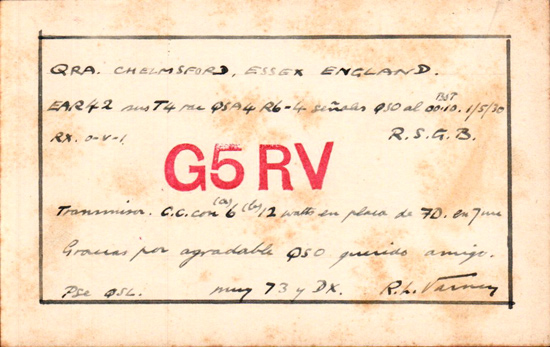 QRA. CHELMSFORD, ESSEX ENGLAND.
BST
EAR42 sus T4 rac QSA4 R6-4 señales QSO al 00.10. 1/5/30
RX. 0-V-1
R.S.G.B.
G5RV
Transmisor. C.C. con (a) 6 (b) 12 watts en placa de 7D. en 7mc
Gracias por agradable QSO querido amigo.
Pse QSL. muy 73 y DX. R.L. Varney